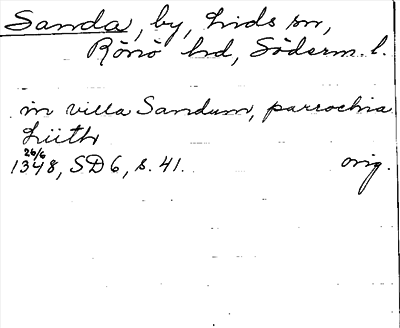 Sanda, by, Lids sn,
Rönö hd, Söderm. l.
in villa Sandum, parrochia
Liith
26/6
1348, SD 6, s. 41. orig.